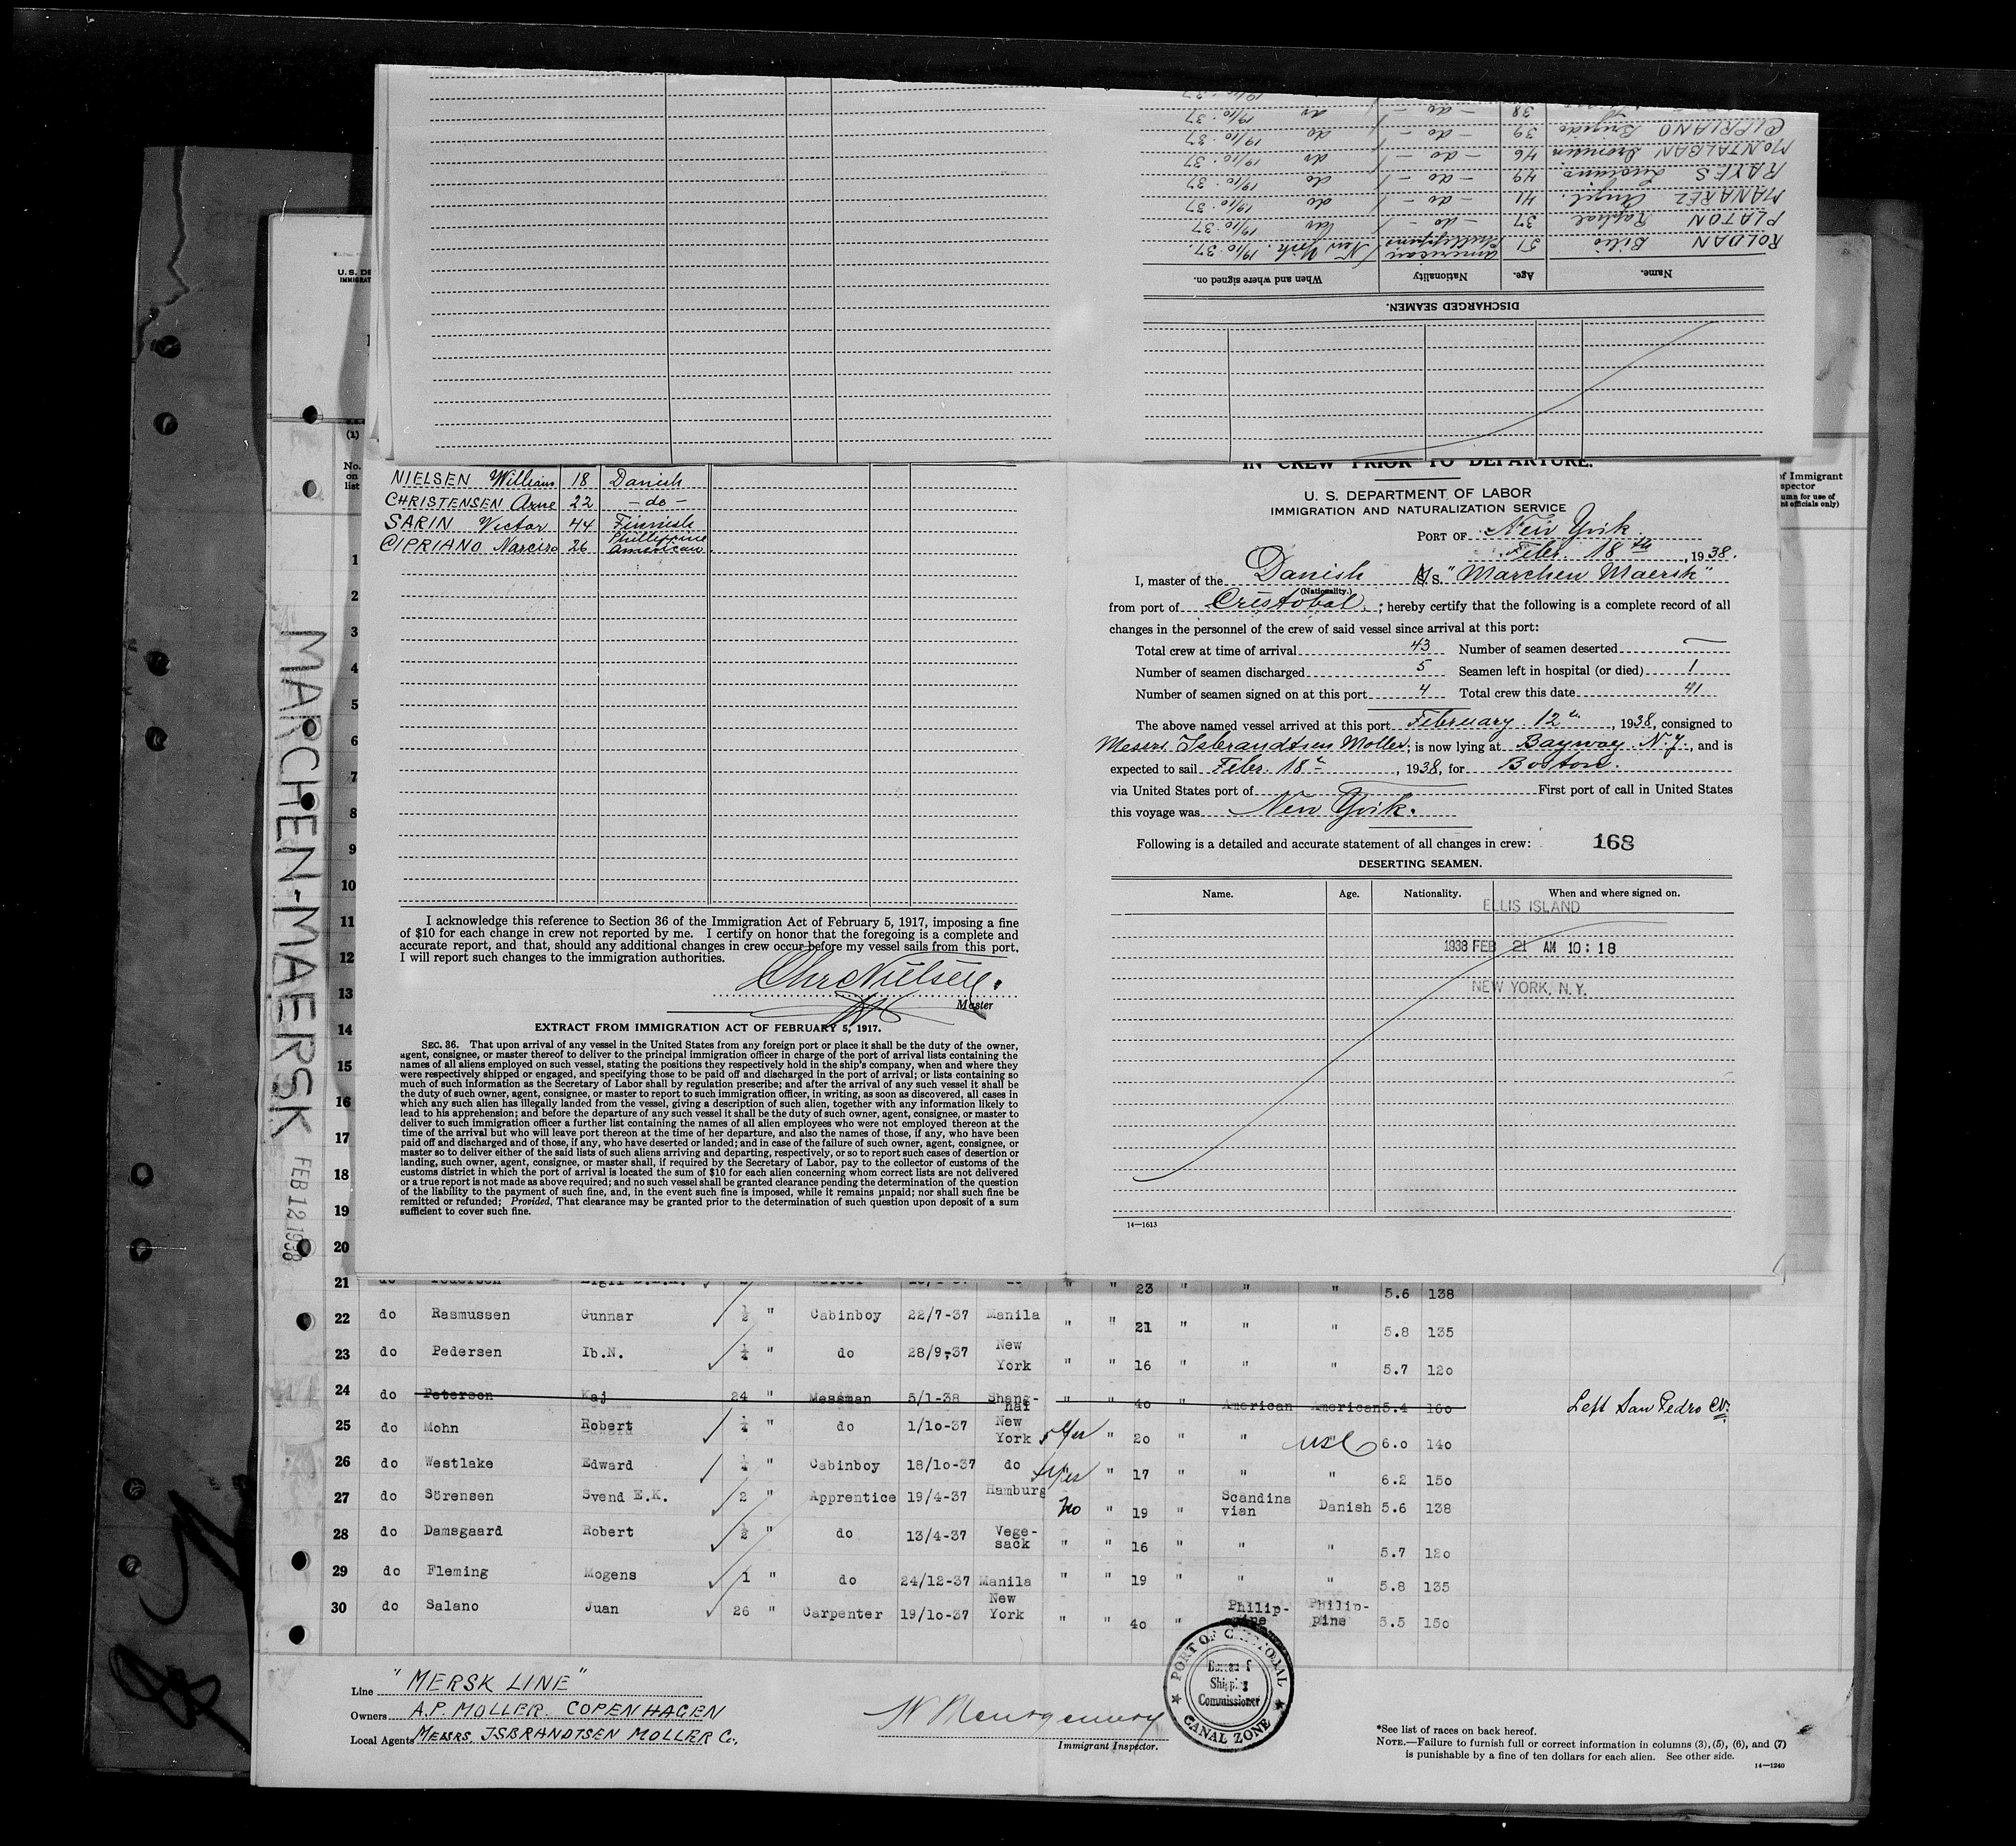 CIPRIANO Brigido 39 - do - do 19/10.37
MONTALBAN 46 - do - do 19/10.37
RAYES 49 - do - do 19/10.37
MANAREZ Angel. 41 - do - do 19/10.37
PLATON Raphael 37 - do - 19/10.37
ROLDAN 51 American Phillippine New York. 19/10.37.
Name. Age. Nationality When and where signed on.
DISCHARGED SEAMEN.
U. S. DE
IMMIGRAT
(1)
No. on list
of Immigrant
spector
umn for use of
nt officials only)
NIELSEN William 18 Danish
CHRISTENSEN Arne 22 - do -
SARIN Victor 44 Finnish
CIPRIANO Narciso 26 Phillippine American.
IN CREW PRIOR TO DEPARTURE.
U. S. DEPARTMENT OF LABOR
IMMIGRATION AND NATURALIZATION SERVICE
PORT OF New York
Febr. 18th, 1938.
I, master of the Danish M/S. "Marchen Maersk"
(Nationality.)
from port of Cristobal.; hereby certify that the following is a complete record of all
changes in the personnel of the crew of said vessel since arrival at this port:
Total crew at time of arrival 43 Number of seamen deserted —
Number of seamen discharged 5 Seamen left in hospital (or died) 1
Number of seamen signed on at this port 4 Total crew this date 41
The above named vessel arrived at this port February 12th, 1938, consigned to
Messrs Isbrandtsen Moller; is now lying at Bayway N.Y., and is
expected to sail Febr. 18th, 1938, for Boston.
via United States port of — First port of call in United States
this voyage was New York.
Following is a detailed and accurate statement of all changes in crew: 168
DESERTING SEAMEN.
Name. Age. Nationality. When and where signed on.
ELLIS ISLAND
1938 FEB 21 AM 10:18
NEW YORK, N.Y.
14—1613
I acknowledge this reference to Section 36 of the Immigration Act of February 5, 1917, imposing a fine
of $10 for each change in crew not reported by me. I certify on honor that the foregoing is a complete and
accurate report, and that, should any additional changes in crew occur before my vessel sails from this port.
I will report such changes to the immigration authorities.
Chr Nielsen.
Master
EXTRACT FROM IMMIGRATION ACT OF FEBRUARY 5, 1917.
SEC. 36. That upon arrival of any vessel in the United States from any foreign port or place it shall be the duty of the owner,
agent, consignee, or master thereof to deliver to the principal immigration officer in charge of the port of arrival lists containing the
names of all aliens employed on such vessel, stating the positions they respectively hold in the ship's company, when and where they
were respectively shipped or engaged, and specifying those to be paid off and discharged in the port of arrival; or lists containing so
much of such information as the Secretary of Labor shall by regulation prescribe; and after the arrival of any such vessel it shall be
the duty of such owner, agent, consignee, or master to report to such immigration officer, in writing, as soon as discovered, all cases in
which any such alien has illegally landed from the vessel, giving a description of such alien, together with any information likely to
lead to his apprehension; and before the departure of any such vessel it shall be the duty of such owner, agent, consignee, or master to
deliver to such immigration officer a further list containing the names of all alien employees who were not employed thereon at the
time of the arrival but who will leave port thereon at the time of her departure, and also the names of those, if any, who have been
paid off and discharged and of those, if any, who have deserted or landed; and in case of the failure of such owner, agent, consignee, or
master so to deliver either of the said lists of such aliens arriving and departing, respectively, or so to report such cases of desertion or
landing, such owner, agent, consignee, or master shall, if required by the Secretary of Labor, pay to the collector of customs of the
customs district in which the port of arrival is located the sum of $10 for each alien concerning whom correct lists are not delivered
or a true report is not made as above required; and no such vessel shall be granted clearance pending the determination of the question
of the liability to the payment of such fine, and, in the event such fine is imposed, while it remains unpaid; nor shall such fine be
remitted or refunded; Provided, That clearance may be granted prior to the determination of such question upon deposit of a sum
sufficient to cover such fine.
MARCHEN-MAERSK FEB 12 1938
1
2
3
4
5
6
7
8
9
10
11
12
13
14
15
16
17
18
19
20
21 do Pedersen " " 23 " " " 5.6 138
22 do Rasmussen Gunnar ½ " Cabinboy 22/7-37 Manila " " 21 " " " 5.8 135
23 do Pedersen Ib.N. ¼ " do 28/9-37 New York " " 16 " " " 5.7 120
24 do Peterson Kaj 24 " Messman 5/1-38 Shang-hai " " 40 " American American 5.4 160 Left San Pedro
25 do Mohn Robert ¼ " do 1/10-37 New York yes " 20 " " USC 6.0 140
26 do Westlake Edward ¼ " Cabinboy 18/10-37 do yes " 17 " " " 6.2 150
27 do Sörensen Svend E.K. 2 " Apprentice 19/4-37 Hamburg no " 19 " Scandinavian Danish 5.6 138
28 do Damsgaard Robert ½ " do 13/4-37 Vege-sack " " 16 " " " 5.7 120
29 do Fleming Mogens 1 " do 24/12-37 Manila " " 19 " " " 5.8 135
30 do Salano Juan 26 " Carpenter 19/10-37 New York " " 40 " Philip-pine Philip-pine 5.5 150
Line "MERSK LINE"
Owners A.P. MOLLER. COPENHAGEN
Local Agents MESSRS. ISBRANDTSEN MOLLER Co.,
W Montgomery
Immigrant Inspector.
PORT OF CRISTOBAL
Bureau of
Shipping
Commissioner
CANAL ZONE
*See list of races on back hereof.
NOTE.—Failure to furnish full or correct information in columns (3), (5), (6), and (7)
is punishable by a fine of ten dollars for each alien. See other side.
14—1240